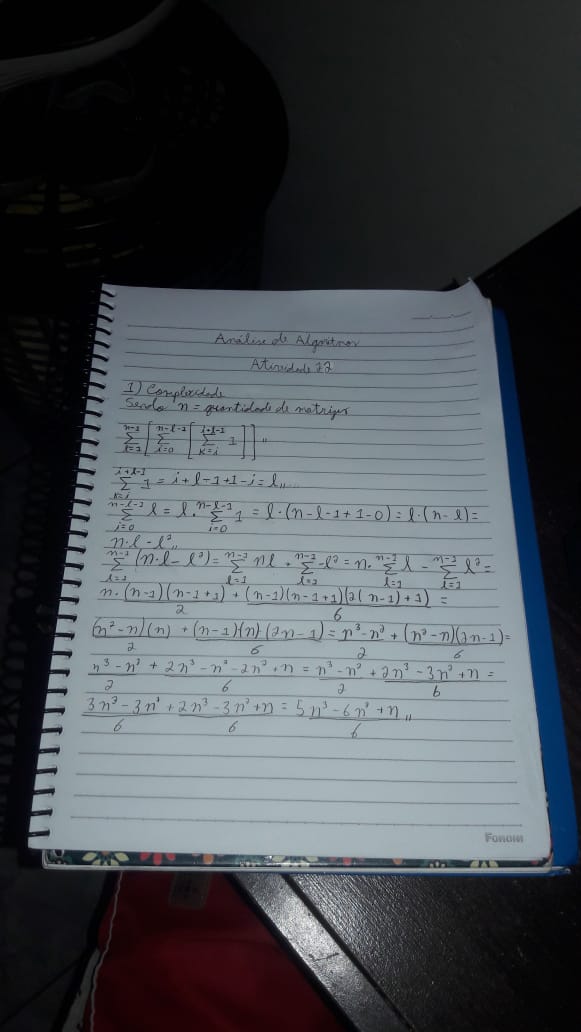 Análise de Algoritmos
Atividade 12
1) Complexidade
Sendo n = quantidade de matrizes
∑_{l=1}^{n-1} [ ∑_{i=0}^{n-l-1} [ ∑_{k=i}^{i+l-1} 1 ] ] ,,
∑_{k=i}^{i+l-1} 1 = i+l-1+1-i = l,,
∑_{i=0}^{n-l-1} l = l · ∑_{i=0}^{n-l-1} 1 = l·(n-l-1+1-0) = l·(n-l) =
n·l - l²,,
∑_{l=1}^{n-1} (n·l - l²) = ∑_{l=1}^{n-1} nl + ∑_{l=1}^{n-1} -l² = n· ∑_{l=1}^{n-1} l - ∑_{l=1}^{n-1} l² =
n·(n-1)(n-1+1)/2 + (n-1)(n-1+1)(2(n-1)+1)/6 =
(n²-n)(n)/2 + (n-1)(n)(2n-1)/6 = n³-n²/2 + (n²-n)(2n-1)/6 =
n³-n²/2 + 2n³-n²-2n²+n/6 = n³-n²/2 + 2n³-3n²+n/6 =
3n³-3n²/6 + 2n³-3n²+n/6 = 5n³-6n²+n/6 ,,
Foroni